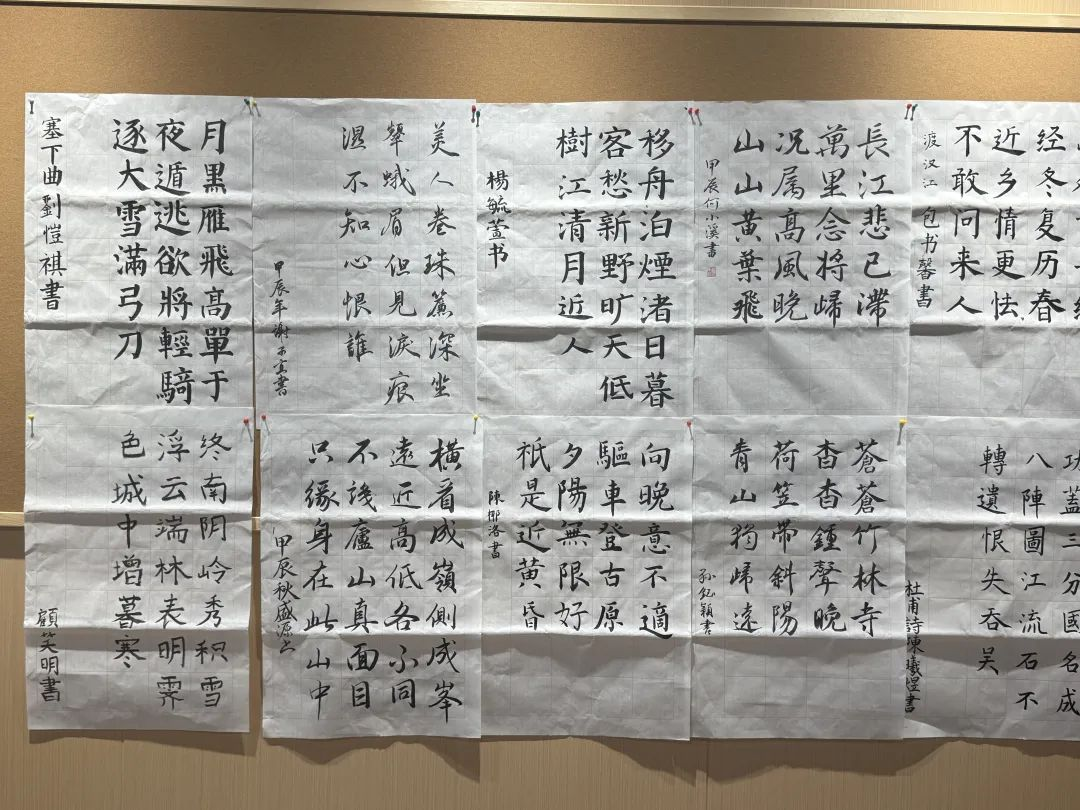 月黑雁飛高單于
夜遁逃欲將輕騎
逐大雪滿弓刀
塞下曲劉愷祺書
美人卷珠簾深坐
顰蛾眉但見淚痕
濕不知心恨誰
甲辰年謝書
移舟泊煙渚日暮
客愁新野旷天低
樹江清月近人
楊毓萱书
長江悲已滯
萬里念將歸
况属高風晚
山山黃葉飛
甲辰何小溪書
经冬复历春
近乡情更怯
不敢问来人
渡汉江 包书馨書
终南阴岭秀积雪
浮云端林表明霁
色城中增暮寒
顧笑明書
橫看成嶺側成峯
遠近高低各不同
不識廬山真面目
只緣身在此山中
甲辰秋盛源书
向晚意不適
驅車登古原
夕陽無限好
祇是近黄昏
陳洛書
蒼蒼竹林寺
杳杳鍾聲晚
荷笠帶斜陽
青山獨歸遠
孙穎書
功蓋三分國名成
八陣圖江流石不
轉遺恨失吞吴
杜甫詩陳曦煜書